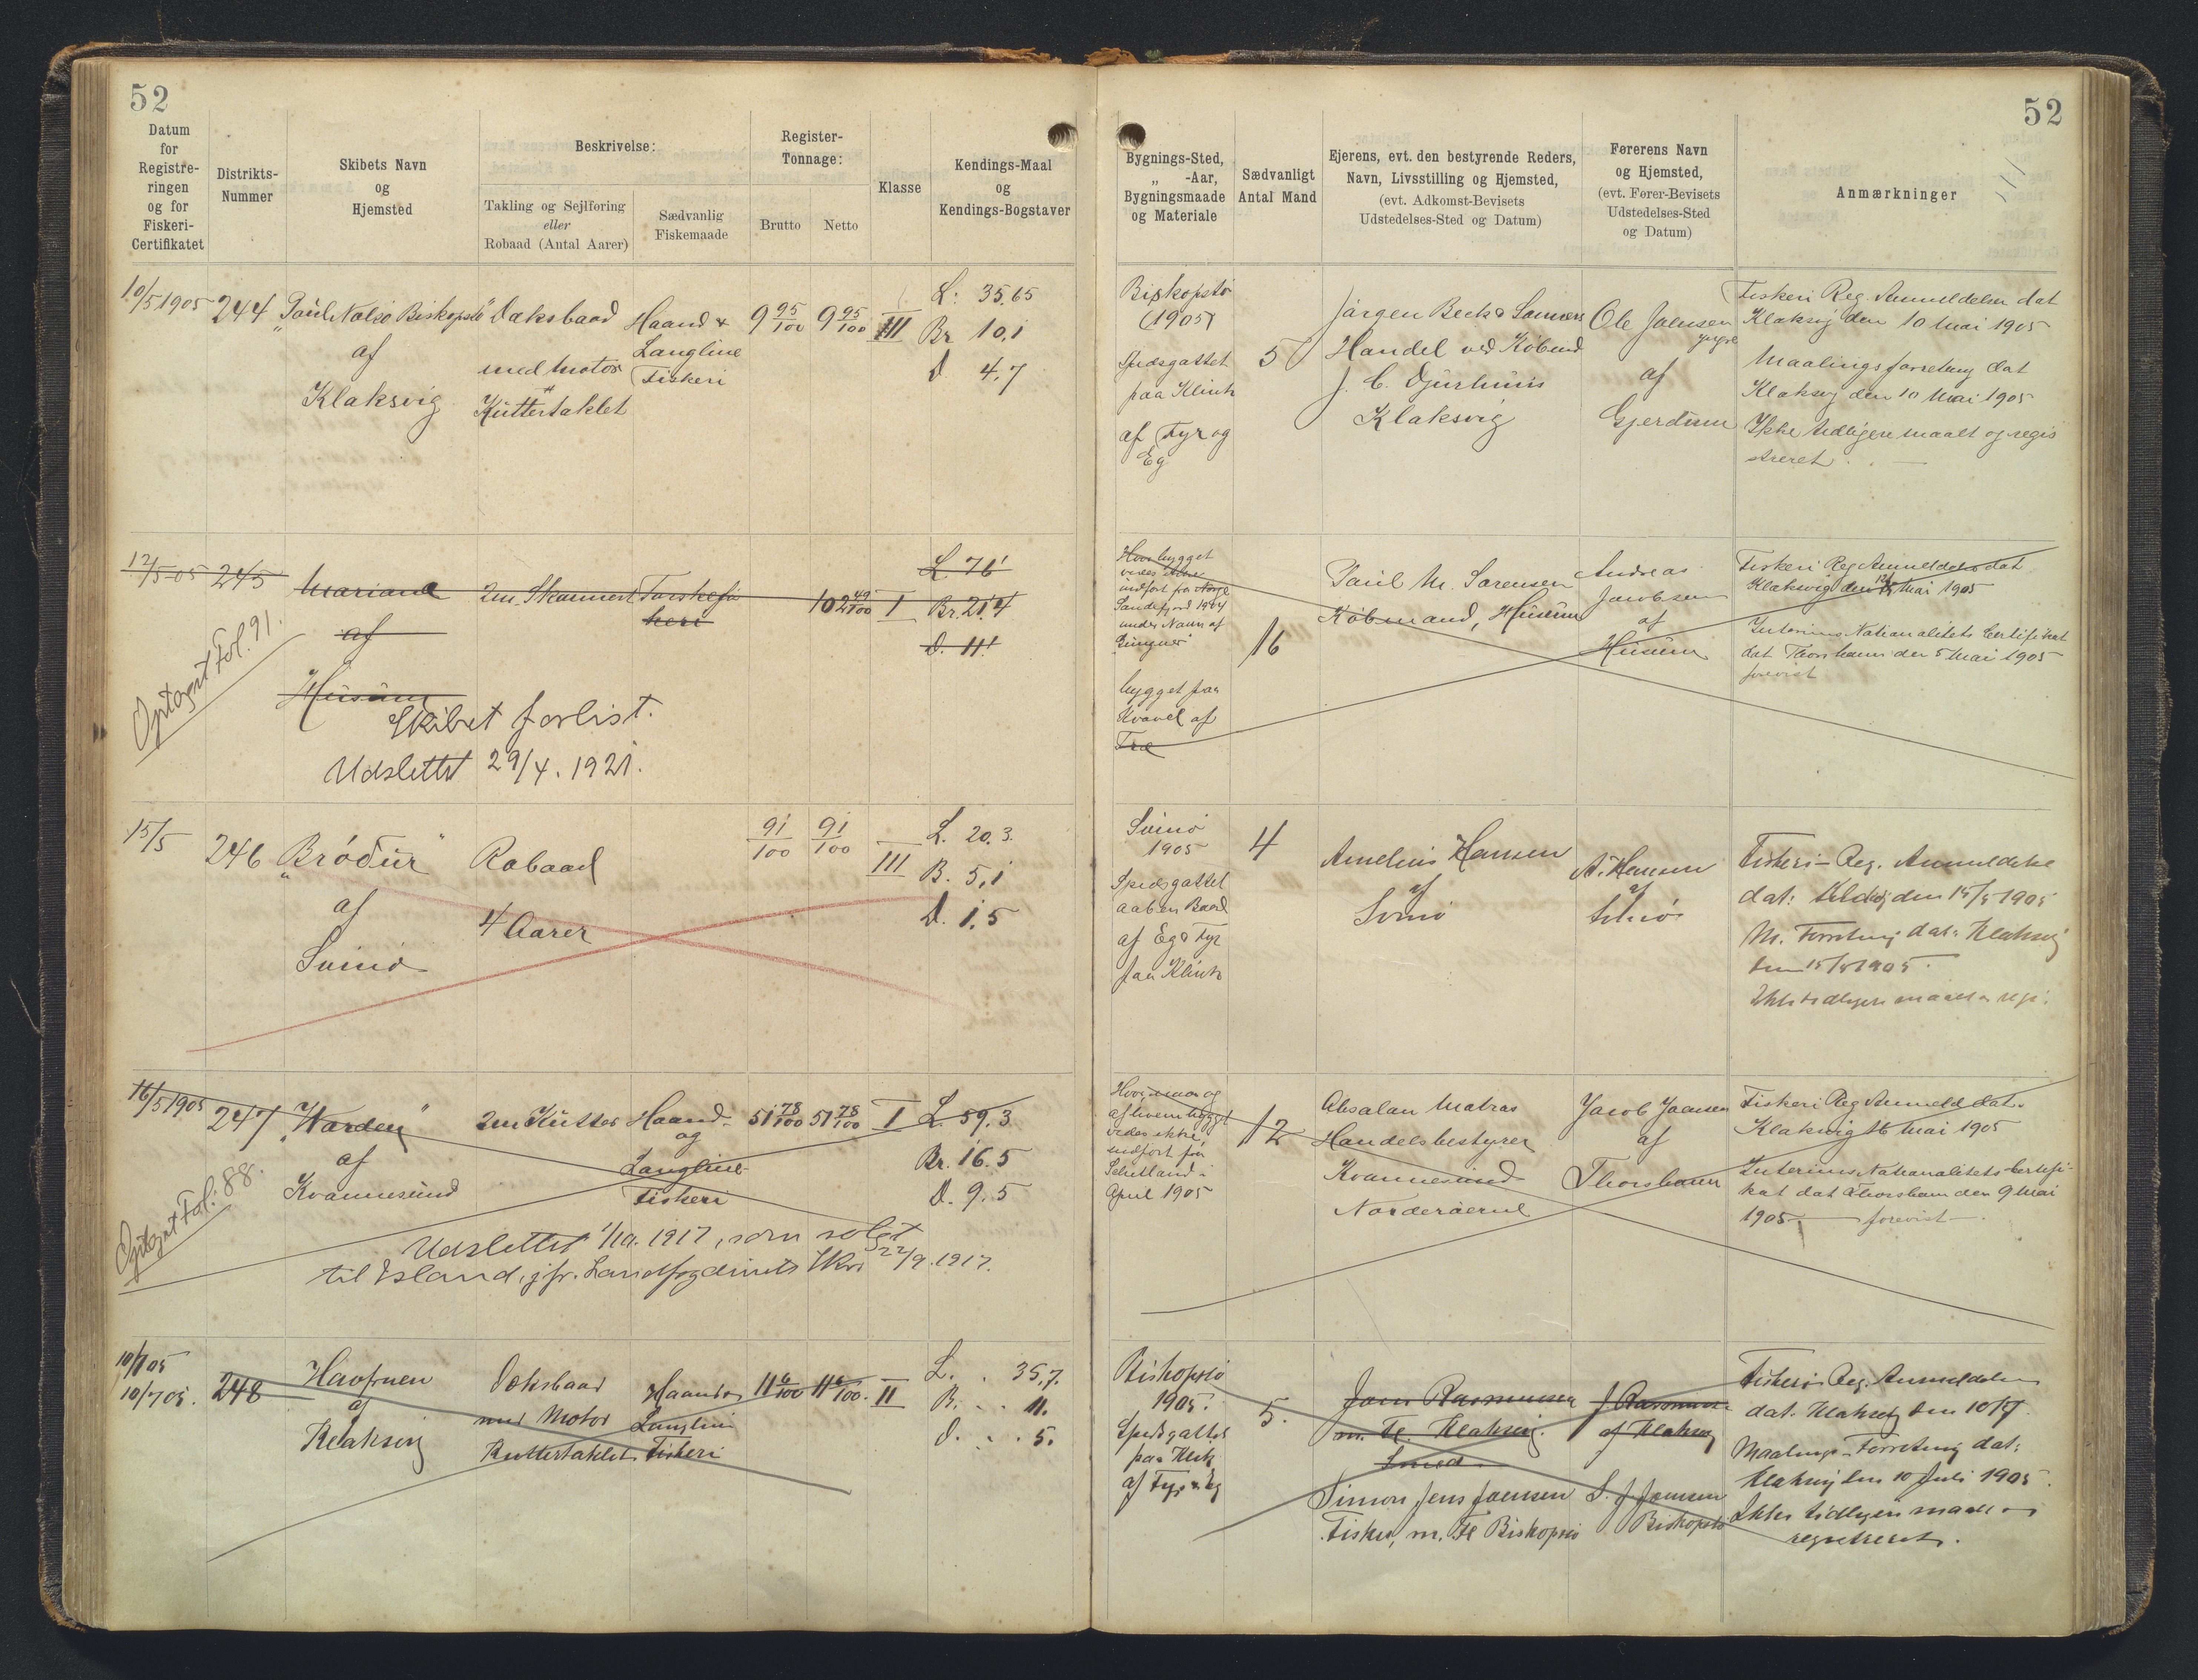 52
Datum
for
Registre-
ringen
og for
Fiskeri-
Certifikatet
Distrikts-
Nummer
Skibets Navn
og
Hjemsted
Beskrivelse:
Takling og Sejlføring
eller
Robaad (Antal Aarer)
Sædvanlig
Fiskemaade
Register-
Tonnage:
Brutto
Netto
Klasse
Kendings-Maal
og
Kendings-Bogstaver
10/5 1905
244
"Paul Nolsø Biskopstø"
af
Klaksvig
Dæksbaad
med Motor
Kuttertaklet
Haand &
Langline
Fiskeri
9 95/100
9 95/100
III
L: 35,65
Br 10,1
D 4,7
12/5-05
245
Mariane
af
Husum
2m. Skonnert
Torskefi
keri
102 49/100
I
L. 76'
Br. 21'4
D. 11'
Optaget Fol. 91.
Skibet forlist.
Udslettet 29/4. 1921.
15/5
246
"Bródur"
af
Svinø
Robaad
4 Aarer
91/100
91/100
III
L. 20.3.
B. 5,1
D. 1,5
16/5 1905
247
"Warden"
af
Kvannesund
2m Kutter
Haand-
og
Langline
Fiskeri
51 78/100
51 78/100
I
L. 59.3
Br. 16.5
D. 9.5
Optaget Fol. 88.
Udslettet 1/10. 1917, som solgt
til Island, jfr. Landfogdens Skr. 22/9. 1917.
10/7 05
10/7 05.
248
Havfruen
af
Klaksvig
Dæksbaad
med Motor
Kuttertaklet
Haand &
Langline
Fiskeri
11 6/100
11 6/100.
II
L. . 35,7.
B. . . 11.
D. . . 5.
52
Bygnings-Sted,
„ -Aar,
Bygningsmaade
og Materiale
Sædvanligt
Antal Mand
Ejerens, evt. den bestyrende Reders,
Navn, Livsstilling og Hjemsted,
(evt. Adkomst-Bevisets
Udstedelses-Sted og Datum)
Førerens Navn
og Hjemsted,
(evt. Fører-Bevisets
Udstedelses-Sted
og Datum)
Anmærkninger
Biskopstø
(1905)
Spidsgattet
paa Klink
af Fyr og
Eg
5
Jørgen Beck & Sønners
Handel ved Købmd
J. C. Djurhuus
Klaksvig
Ole Joensen
yngre
af
Gjerdum
Fiskeri Reg. Anmeldelse dat
Klaksvig den 10 Mai 1905
Maalingsforretning dat
Klaksvig den 10 Mai 1905
Ikke tidligere maalt og regis
streret.
Hvor bygget
vides ikke
indført fra Norge
Sandefjord 1904
under Navn af
bygget paa
Kravel af
Træ
16
Paul M. Sørensen
Købmand, Husum
Andreas
Jacobsen
af
Husum
Fiskeri Reg Anmeldelse dat
Klaksvig den 12 Mai 1905
Interims Nationalitets Certifikat
dat Thorshavn den 5 Mai 1905
forevist
Svinø
1905
Spidsgattet
aaben Baad
af Eg & Fyr
paa Klink
4
Amelius Hansen
af
Svinø
A. Hansen
af
Svinø
Fiskeri-Reg. Anmeldelse
dat. Klaksvig den 15/5 1905
M. Forretning dat. Klaksvig
den 15/5 1905.
Ikke tidligere maalt & regi.
Hvor, naar og
af hvem bygget
vides ikke,
indført fra
Schetland i
April 1905
12
Absalon Matras
Handelsbestyrer
Kvannesund
Norderøerne
Jacob Joensen
af
Thorshavn
Fiskeri Reg Anmeld dat.
Klaksvig 16 Mai 1905
Interims Nationalitets-Certifi-
kat dat Thorshavn den 9 Mai
1905 forevist
Biskopstø
1905.
Spidsgattet
paa Klink
af Fyr & Eg
5.
Joen Rasmussen
m. Fl. Klaksvig.
Smed
Simon Jens Joensen
Fisker, m. Fl Biskopstø
J Rasmussen
af Klaksvig
S. J Joensen
Biskopstø
Fiskeri Reg. Anmeldelse
dat. Klaksvig den 10/7
Maalings-Forretning dat.
Klaksvig den 10 Juli 1905.
Ikke tidligere maalt og
registreret.